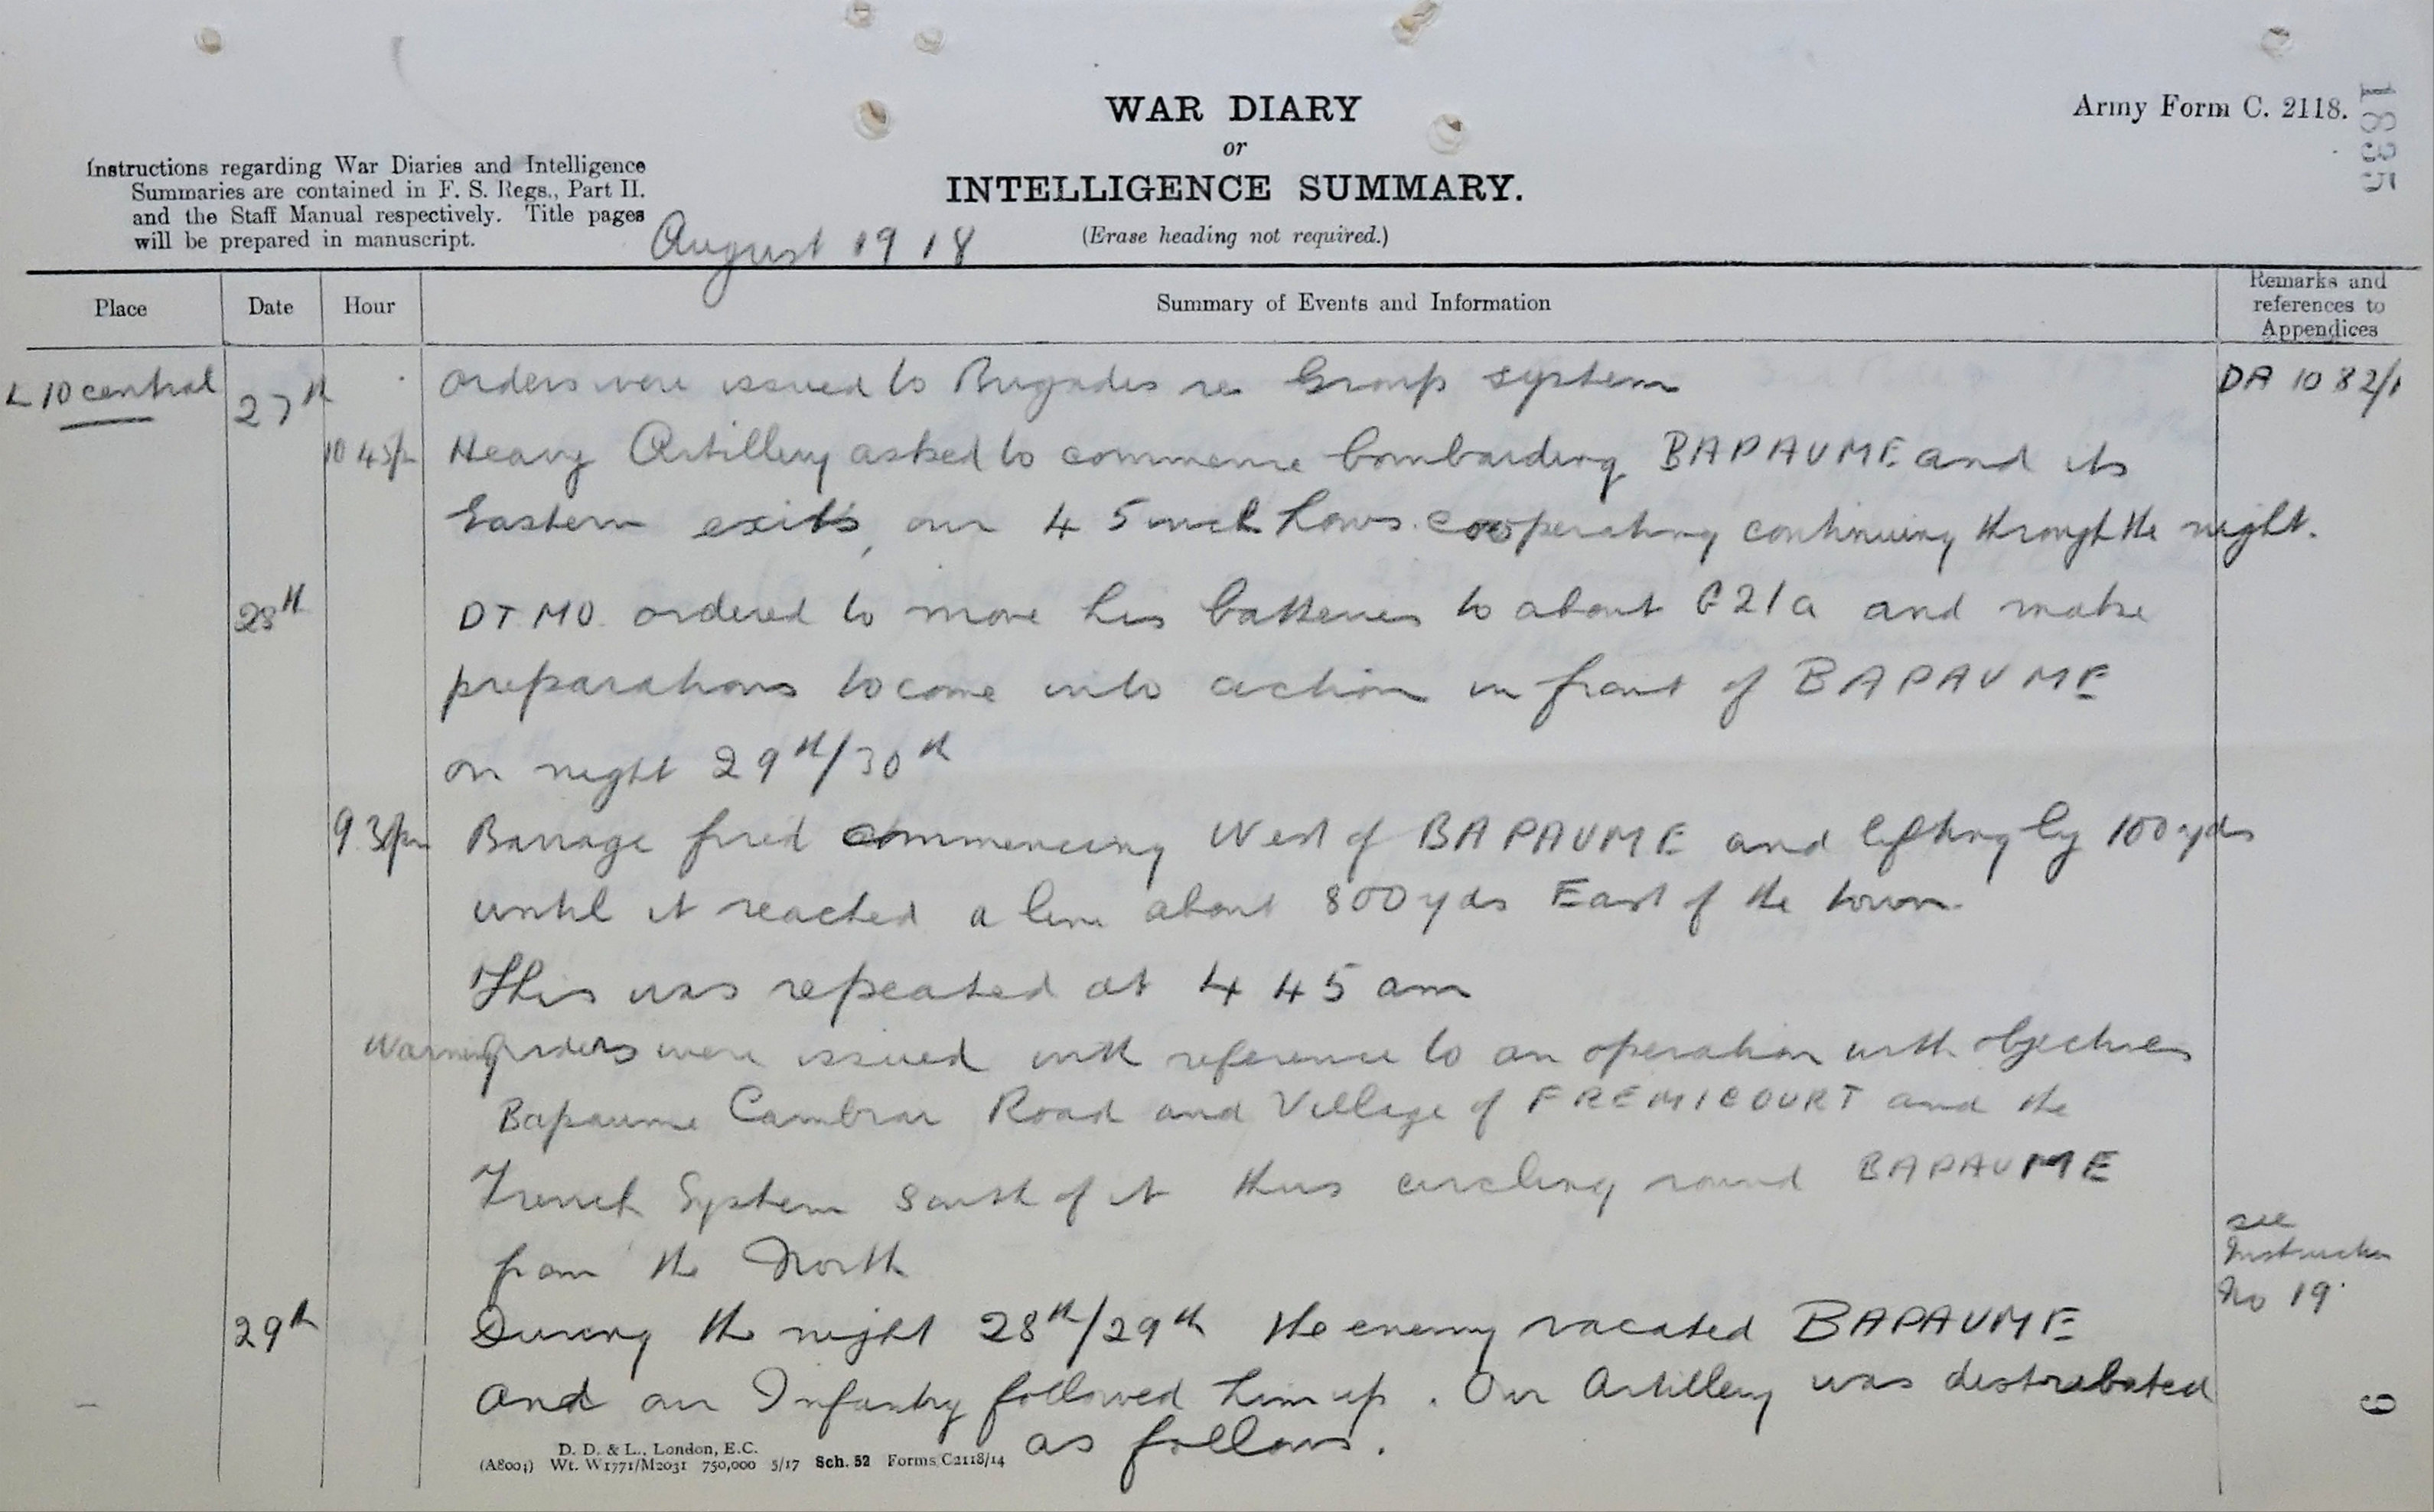 WAR DIARY
or
INTELLIGENCE SUMMARY.
(Erase heading not required.)
Army Form C. 2118.
1835
Instructions regarding War Diaries and Intelligence
Summaries are contained in F. S. Regs., Part II.
and the Staff Manual respectively. Title pages
will be prepared in manuscript.
August 1918
Place Date Hour Summary of Events and Information Remarks and references to Appendices
L 10 central 27th Orders were issued to Brigades re Group system DA 1082/1
10 45pm Heavy Artillery asked to commence bombarding BAPAUME and its
Eastern exits, our 4 5 inch hows. cooperating continuing through the night.
28th DTMO. ordered to move his batteries to about G21a and make
preparations to come into action in front of BAPAUME
on night 29th/30th
9.3pm Barrage fired commencing West of BAPAUME and lifting by 100 yds
until it reached a line about 800 yds East of the town.
This was repeated at 4 45 am
Warning Orders were issued with reference to an operation with objectives
Bapaume Cambrai Road and Village of FREMICOURT and the
Trench System South of it thus circling round BAPAUME
from the North
see
Instruction
No 19.
29th During the night 28th/29th the enemy vacated BAPAUME
and our Infantry followed him up. Our Artillery was distributed
as follows.
9
D. D. & L., London, E.C.
(A8004) Wt. W1771/M2031 750,000 5/17 Sch. 52 Forms/C2118/14